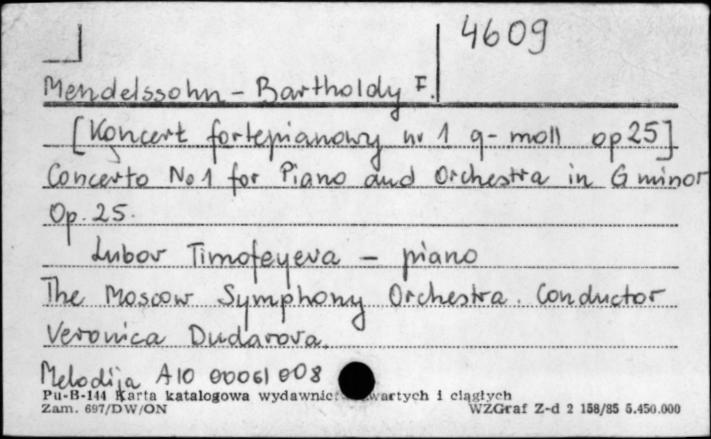 4609
Mendelssohn - Bartholdy F.
[Koncert fortepianowy nr 1 g-moll op 25]
Concerto No 1 for Piano and Orchestra in G minor
Op. 25.
Lubov Timofeyeva - piano
The Moscow Symphony Orchestra. Conductor
Veronica Dudarova.
Melodija A10 00061 008
Pu-B-144 Karta katalogowa wydawnic wartych i ciągłych
Zam. 697/DW/ON WZGraf Z-d 2 158/85 5.450.000